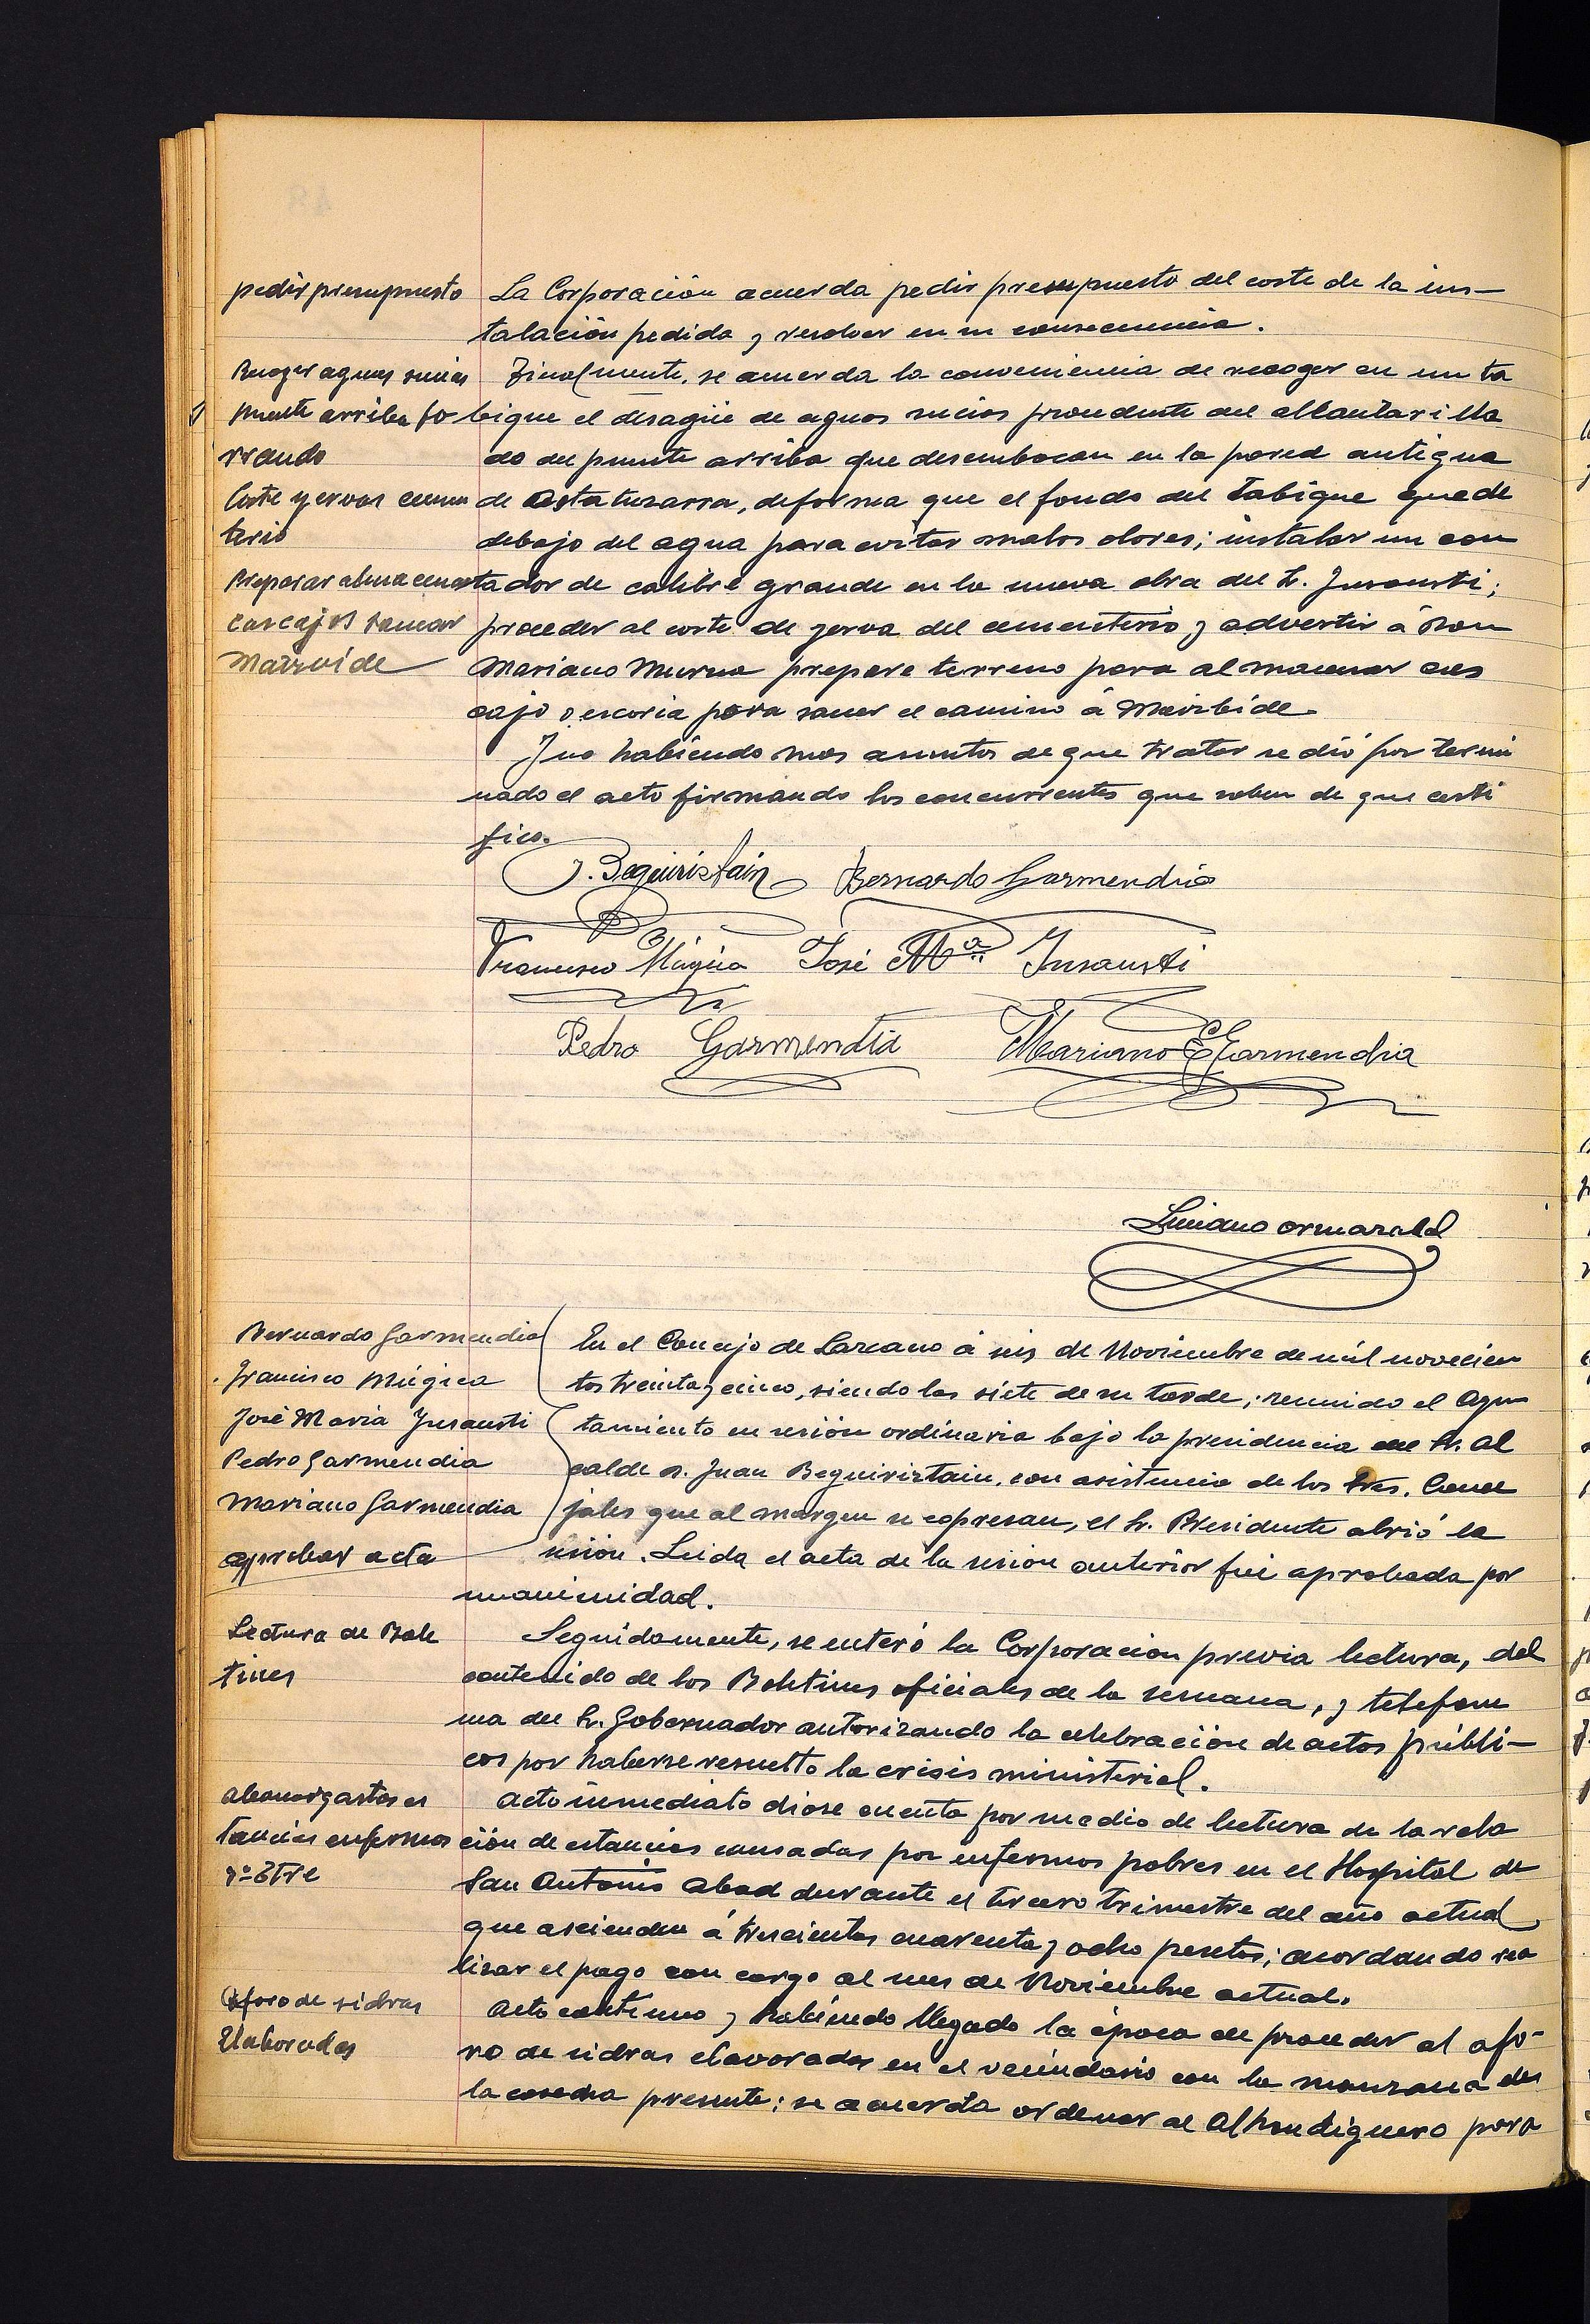 pedir presupuesto
La Corporación acuerda pedir presupuesto del coste de la ins-
talación pedida y resolver en su consecuencia.
Recoger aguas sucias
Finalmente, se acuerda la conveniencia de recoger en un ta
puente arriba fo
bique el desagüe de aguas sucias procedente del alcantarilla
rrando
do del puente arriba que desembocan en la pared antigua
Corte yervas cemen
de Ostatuzarra, de forma que el fondo del tabique quede
terio
debajo del agua para evitar malos olores; instalar un con
Preparar almacenar
tador de calibre grande en la nueva obra del Sr. Insausti;
cascajos sanear
proceder al corte de yerva del cementerio y advertir á Don
Mairvide
Mariano Murua prepare terreno para almacenar cas
cajo y escoria para sanear el camino á Mairbide
Y no habiendo mas asuntos de que tratar se dió por termi
nado el acto firmando los concurrentes que saben de que certi
fico.
J. Beguiristain Bernardo Garmendia
Francisco Múgica José Mª Insausti
Pedro Garmendia Mariano Garmendia
Luciano Ormazabal
Bernardo Garmendia
Francisco Múgica
José Maria Insausti
Pedro Garmendia
Mariano Garmendia
En el Concejo de Lazcano á seis de Noviembre de mil novecien
tos treinta y cinco, siendo las siete de su tarde; reunido el Ayun
tamiento en sesión ordinaria bajo la presidencia del Sr. Al
calde D. Juan Beguiristain, con asistencia de los Sres. Conce
jales que al margen se expresan, el Sr. Presidente abrió la
aprobar acta
sesion. Leida el acta de la sesion anterior fué aprobada por
unanimidad.
Lectura de Bole
tines
Seguidamente, se enteró la Corporacion previa lectura, del
contenido de los Boletines oficiales de la semana, y telefone
ma del Sr. Gobernador autorizando la celebración de actos públi-
cos por haberse resuelto la crisis ministerial.
abonar gastos es
tancias enfermos
3º Trre
Acto inmediato diose cuenta por medio de lectura de la rela
ción de estancias causadas por enfermos pobres en el Hospital de
San Antonio Abad durante el tercero trimestre del año actual
que ascienden á trescientas cuarenta y ocho pesetas; acordando rea
lizar el pago con cargo al mes de Noviembre actual.
Aforo de sidras
Elaboradas
Acto continuo y habiendo llegado la época de proceder al afo-
ro de sidras elavoradas en el vecindario con la manzana de
la cosecha presente; se acuerda ordenar al Alhondiguero para